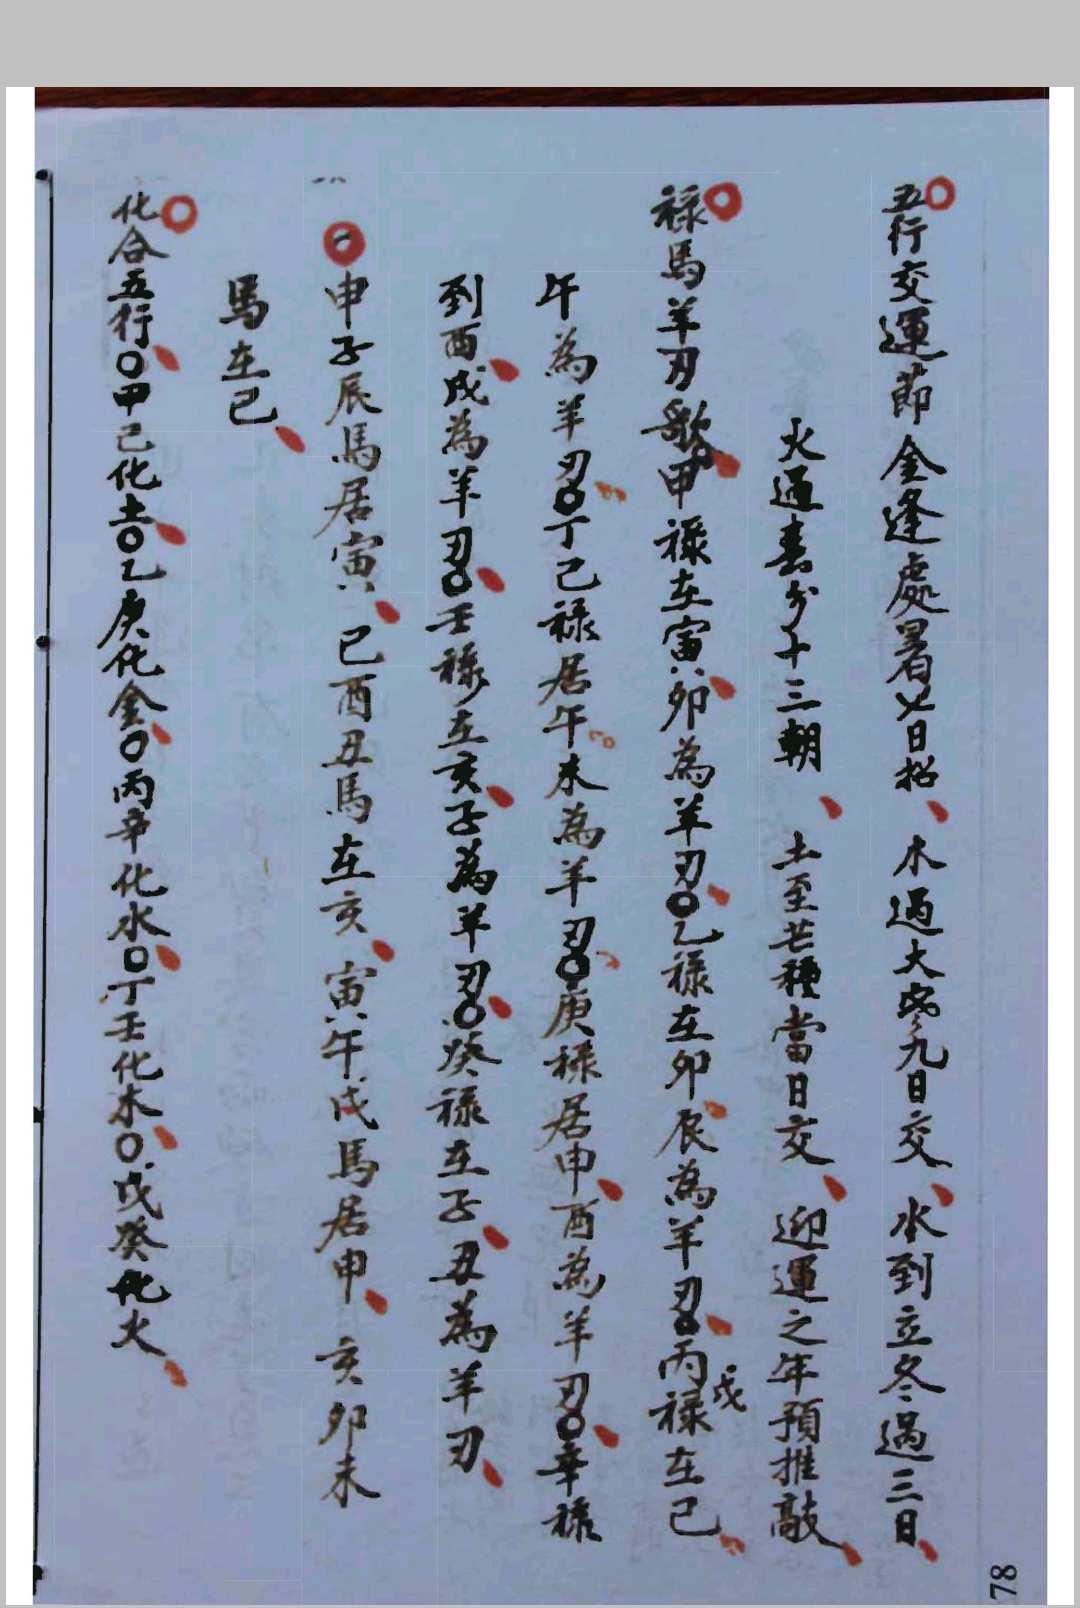 五行交運節金逢處暑七日招木過大寒九日交水到立冬過三日
火過春分十三朝土至芒種當日交迎運之年預推敲
祿馬羊刃歌甲祿在寅卯為羊刃〇乙祿在卯辰為羊刃〇丙戊祿在巳
午為羊刃〇丁己祿居午未為羊刃〇庚祿居申酉為羊刃〇辛祿
到酉戌為羊刃〇壬祿在亥子為羊刃〇癸祿在子丑為羊刃
一申子辰馬居寅巳酉丑馬在亥寅午戌馬居申亥卯未
馬在巳
化合五行〇甲己化土〇乙庚化金〇丙辛化水〇丁壬化木〇戊癸化火
78